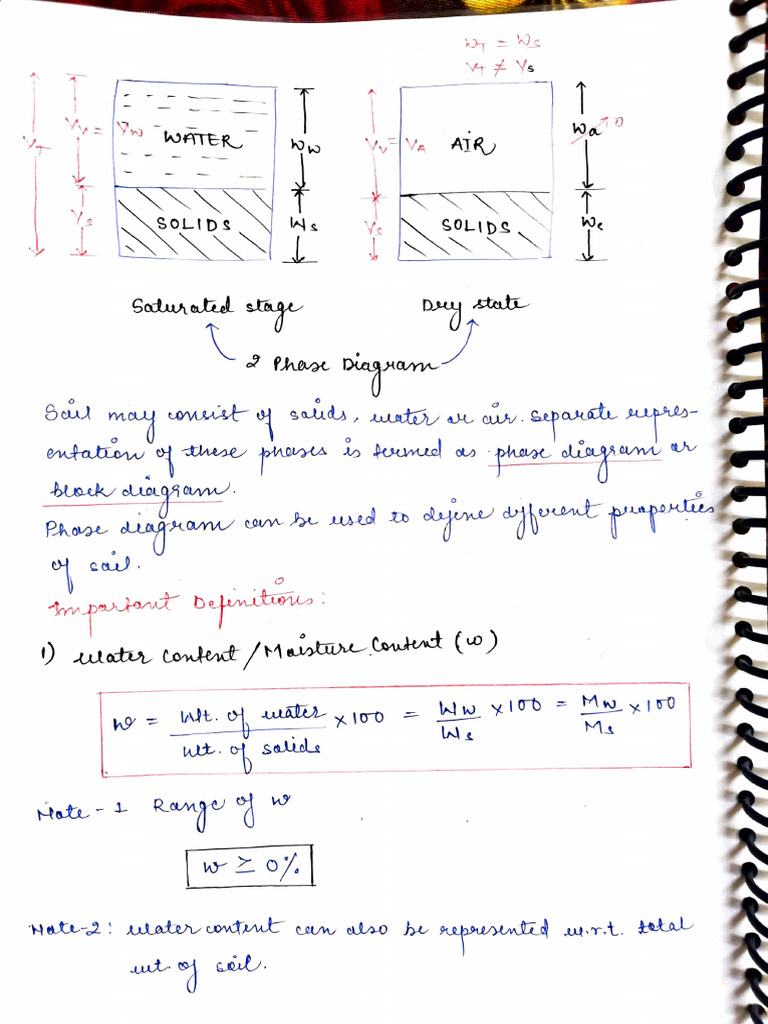 WT = Ws
VT ≠ Vs
VT
Vv = Vw
WATER
Ww
Vs
SOLIDS
Ws
Vv = VA
AIR
Wa → 0
Vs
SOLIDS
Saturated stage
Dry state
2 Phase Diagram
Soil may consist of solids, water or air. Separate repres-
entation of these phases is termed as phase diagram or
block diagram.
Phase diagram can be used to define different properties
of soil.
Important Definitions:
1) Water Content / Moisture Content (w)
w = Wt. of water / Wt. of solids × 100 = Ww / Ws × 100 = Mw / Ms × 100
Note - 1 Range of w
w ≥ 0%
Note-2: Water content can also be represented w.r.t. total
wt. of soil.